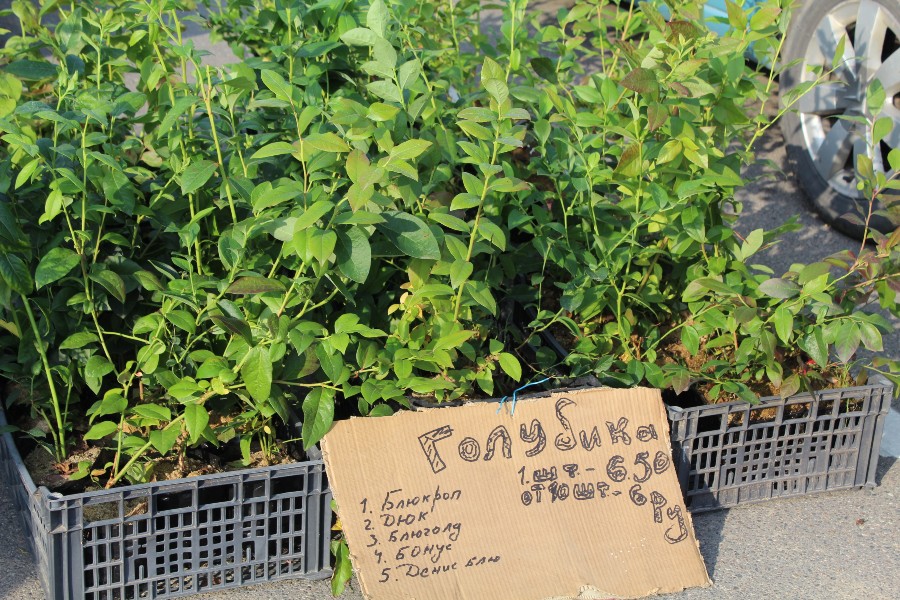 Голубика
1.шт.-6.50
от 10 шт.-6 ру
1. Блюкроп
2. Дюк
3. Блюголд
4. Бонус
5. Денис блю